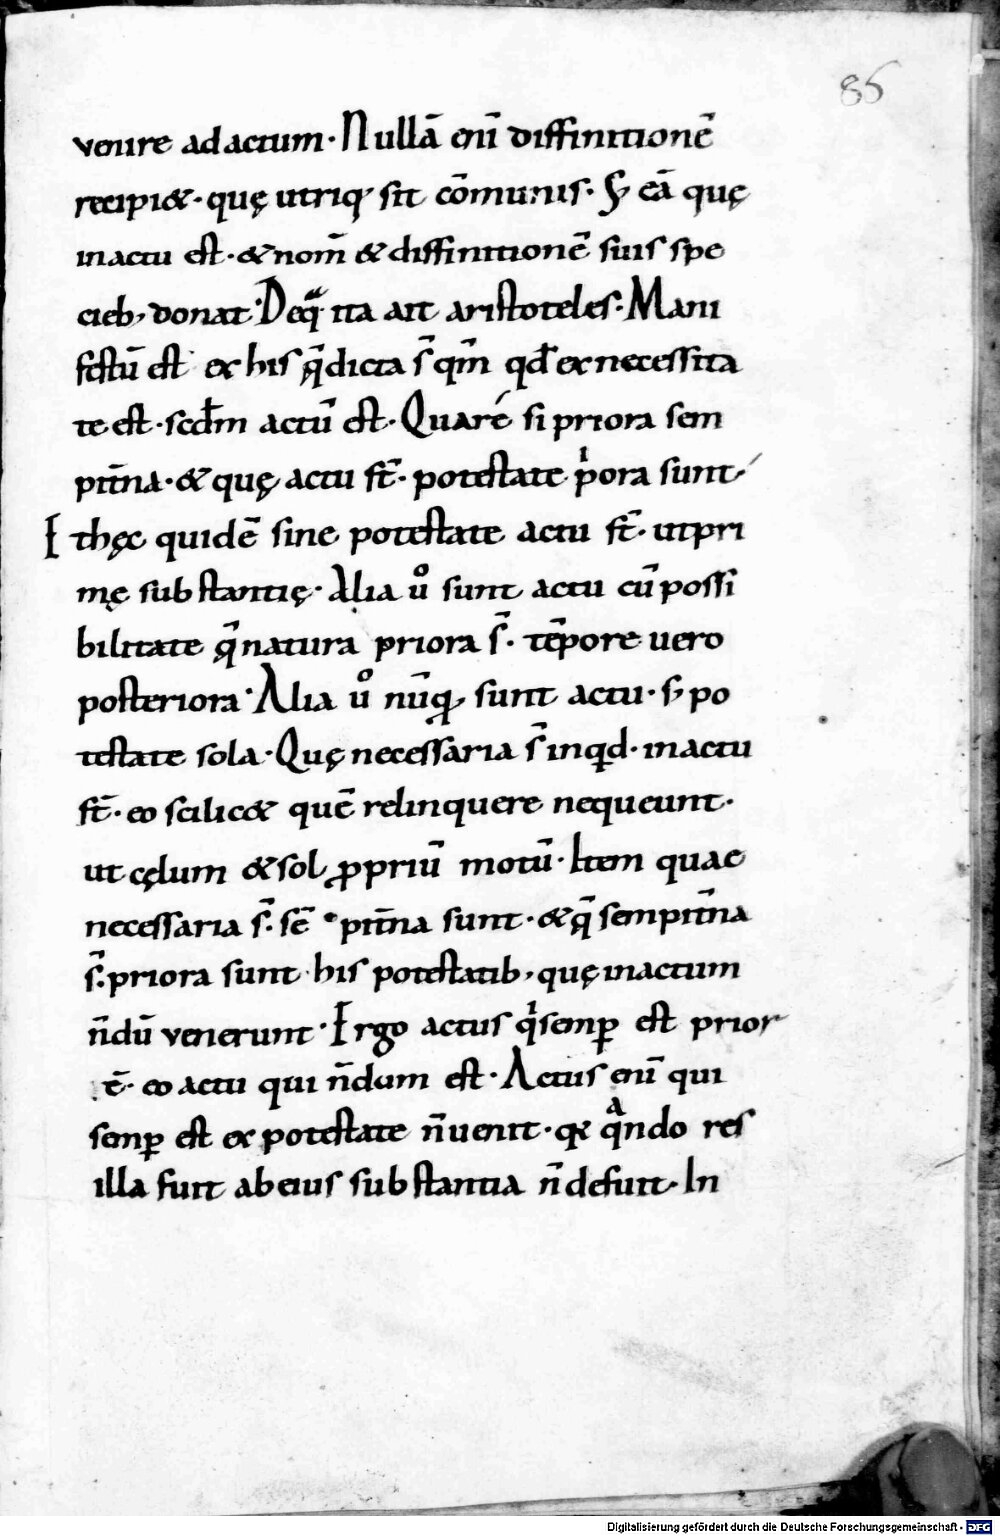 86
venire ad actum · Nullā enī diffinitionē
recipi& · quę utriq; sit cōmunis · S; eā quę
in actu est · & nom̄ & diffinitionē suis spe
cieb; donat · Deq̄ ita ait aristoteles · Mani
festū est ex his q̄ dicta s̄ qm̄ qđ ex necessita
te est · scdm̄ actū est · Quare si priora sem
pit̄na · & quę actu st̄ · potestate pora sunt ·
Et hęc quidē sine potestate actu st̄ · ut pri
mę substantię · Alia uº sunt actu cū possi
bilitate q̄ natura priora s̄ · tēpore uero
posteriora · Alia uº nūq; sunt actu · s; po
testate sola · Quę necessaria s̄ inqđ · in actu
st̄ · eo scilic& quē relinquere nequeunt ·
ut cęlum & sol ꝓpriū motū · Item quae
necessaria s̄ · sē pit̄na sunt · & q̄ sempit̄na
s̄ · priora sunt his potestatib; quę in actum
n̄dū venerunt · Ergo actus qͥ semꝑ est prior
ē · eo actu qui n̄dum est · Actus enī qui
semꝑ est ex potestate n̄ uenit · qꝛ qᵃndo res
illa fuit ab eius substantia n̄ defuit · In
Digitalisierung gefördert durch die Deutsche Forschungsgemeinschaft · DFG